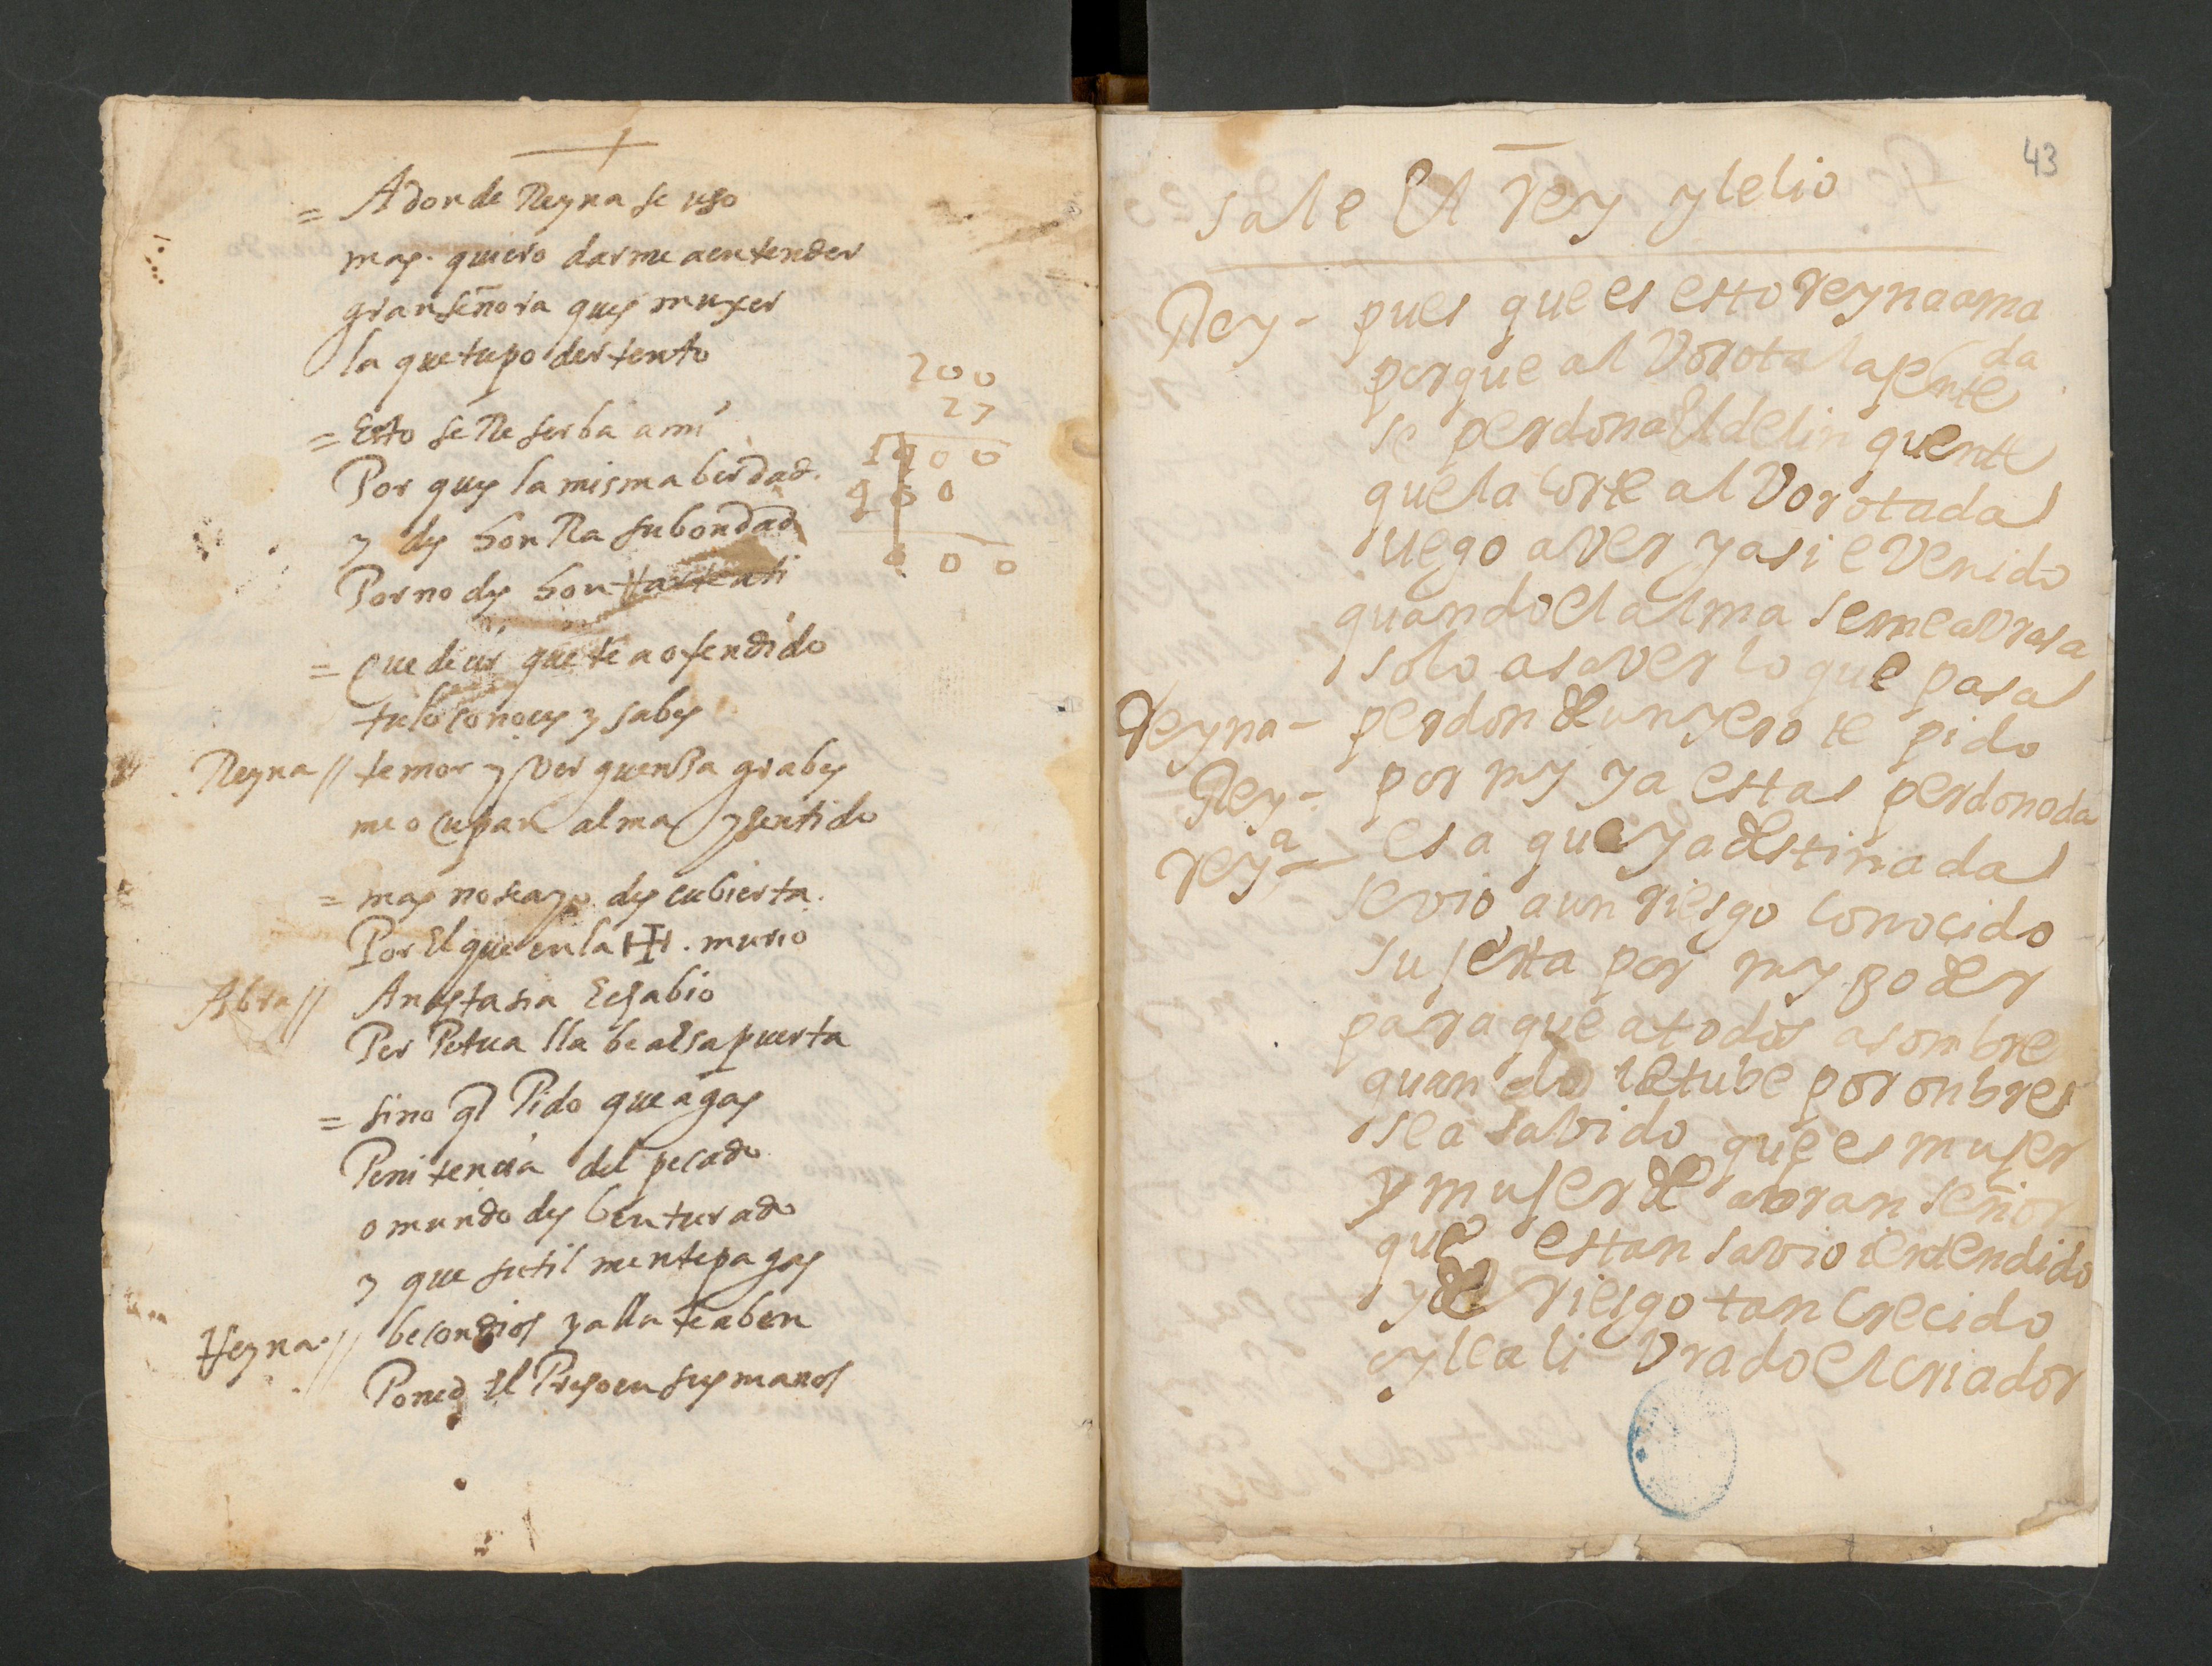 = Adonde Reyna se uso
mas. quiero darme a entender
gran señora ques muxer
la que tupo der tento
= Esto se Reserba a mi
Por ques la misma berdad.
y des honRa su bondad
Por no des honrrarte a ti
= que decir que te a ofendido
tu lo conoces y sabes
Reyna // temor y verguensa grabes
me ocupan alma y sentido
= mas no sea yo descubierta.
Por El que en la . murio
Abra // Anastasia
Per Petua lla be alsa puerta
= sino q̃l Pido que agas
Penitencia del pecado
o mundo des benturado
y que sutil mente pagas
Reyna. // be con dios y alla te aben
Poned El Preso en sus manos
200
27
1400
400
000
43
sale El rey y lelio
Rey - pues que es esto reyna ama
da
porque al vorota la jente
se perdona El delinquente
que la corte al vorotada
llego a ver y asi e venido
quando el alma se me avrasa
solo a saver lo que pasa
Reyna - perdon de un yero te pido
Rey - por my ya estas perdonada
reyª - es a que ya destinada
se vio a un riesgo conocido
sujetta por my poder
para que a todos asombre
quando le tube por onbre
se a savido que es mujer
y mujer de avran señor
que es tan savio i entendido
y de riesgo tan crecido
oy le a li vrado el criador